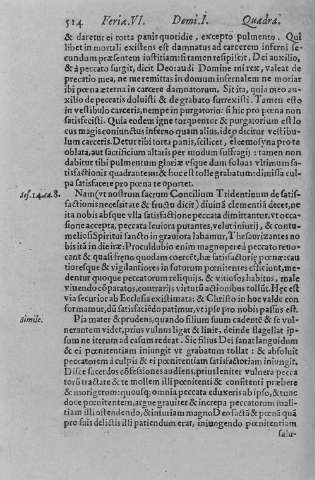 514 Feria.VI. Domi.I. Quadra.
& daretur ei torta panis quotidie, excepto pulmento. Qui
libet in mortali existens est damnatus ad carcerem inferni se
cundum præsentem iustitiam: si tamen respiscit. Dei auxilio,
& à peccato surgit, dicit Deo: audi Domine mi rex, valeat de
præcatio mea, ne me remittas in domum infernalem ne moriar
ibi pœna æterna in carcere damnatorum. Sit ita, quia meo au-
xilio de peccatis doluisti & de grabato surrexisti. Tamen esto
in vestibulo carceris, nempe in purgatorio: si hic pro pœna non
satisfecisti. Quia eodem igne torquentur & purgatorium est lo
cus magis coniunctus inferno quam alius, ideo dicitur vestibu-
lum carceris. Detur tibi torta panis, scilicet, eleemosyna pro te
oblata, aut sacrificium altaris per modum suffragij: tamen non
dabitur tibi pulmentum gloriæ vsque dum soluas vltimum sa-
tisfactionis quadrantem: & hoc est tolle grabatum dimissa cul-
pa satisfacere pro pœna te oportet.
ses.14.ca.8. Nam (vt nostrum sacrum Concilium Tridentinum de satis-
factionis necessitate & fructu dicit) diuina clementia decet, ne
ita nobis absque vlla satisfactione peccata dimittantur, vt occa-
sione accepta, peccata leuiora putantes, velut iniurij, & contu-
meliosi Spiritui sancto in grauiora labamur, Thesaurizantes no
bis irã in die iræ: Proculdubio enim magnopere à peccato reuo
cant & quasi freno quodam coercẽt, hæ satisfactoriæ pœnæ: cau
tioresque & vigilantiores in futurum pœnitentes efficiunt, me-
dentur quoque peccatorum reliquijs, & vitiosos habitus, male
viuendo cõparatos, contrarijs virtutũ actionibus tollũt. Hęc est
via securior ab Ecclesia existimata: & Christo in hoc valde con
formamur, dũ satisfaciẽdo patimur, vti ipse pro nobis passus est.
simile. Pia mater & prudens, quando filium suum cadentẽ & se vul-
nerantem videt, prius vulnus ligat & linit, deinde flagellat ip-
sum ne iterum ad casum redeat. Sic filius Dei sanat languidum
& ei pœnitentiam iniungit vt grabatum tollat: & absoluit
peccatorem à culpis & ei pœnitentiam satisfactoriam iniungit.
Disce sacerdos cõfessiones audiens, prius leniter vulnera pecca
toris tractare & te mollem illi pœnitenti & confitenti præbere
& morigerum: quousque omnia peccata eduxeris ab ipso, & tunc
doce pœnitentem, argue grauiter & increpa peccatorum mali-
tiam illi ostendendo, & iniuriam magno Deo factã & pœnã quã
pro suis delictis illi patiendum erat, iniungendo pœnitentiam
salu-